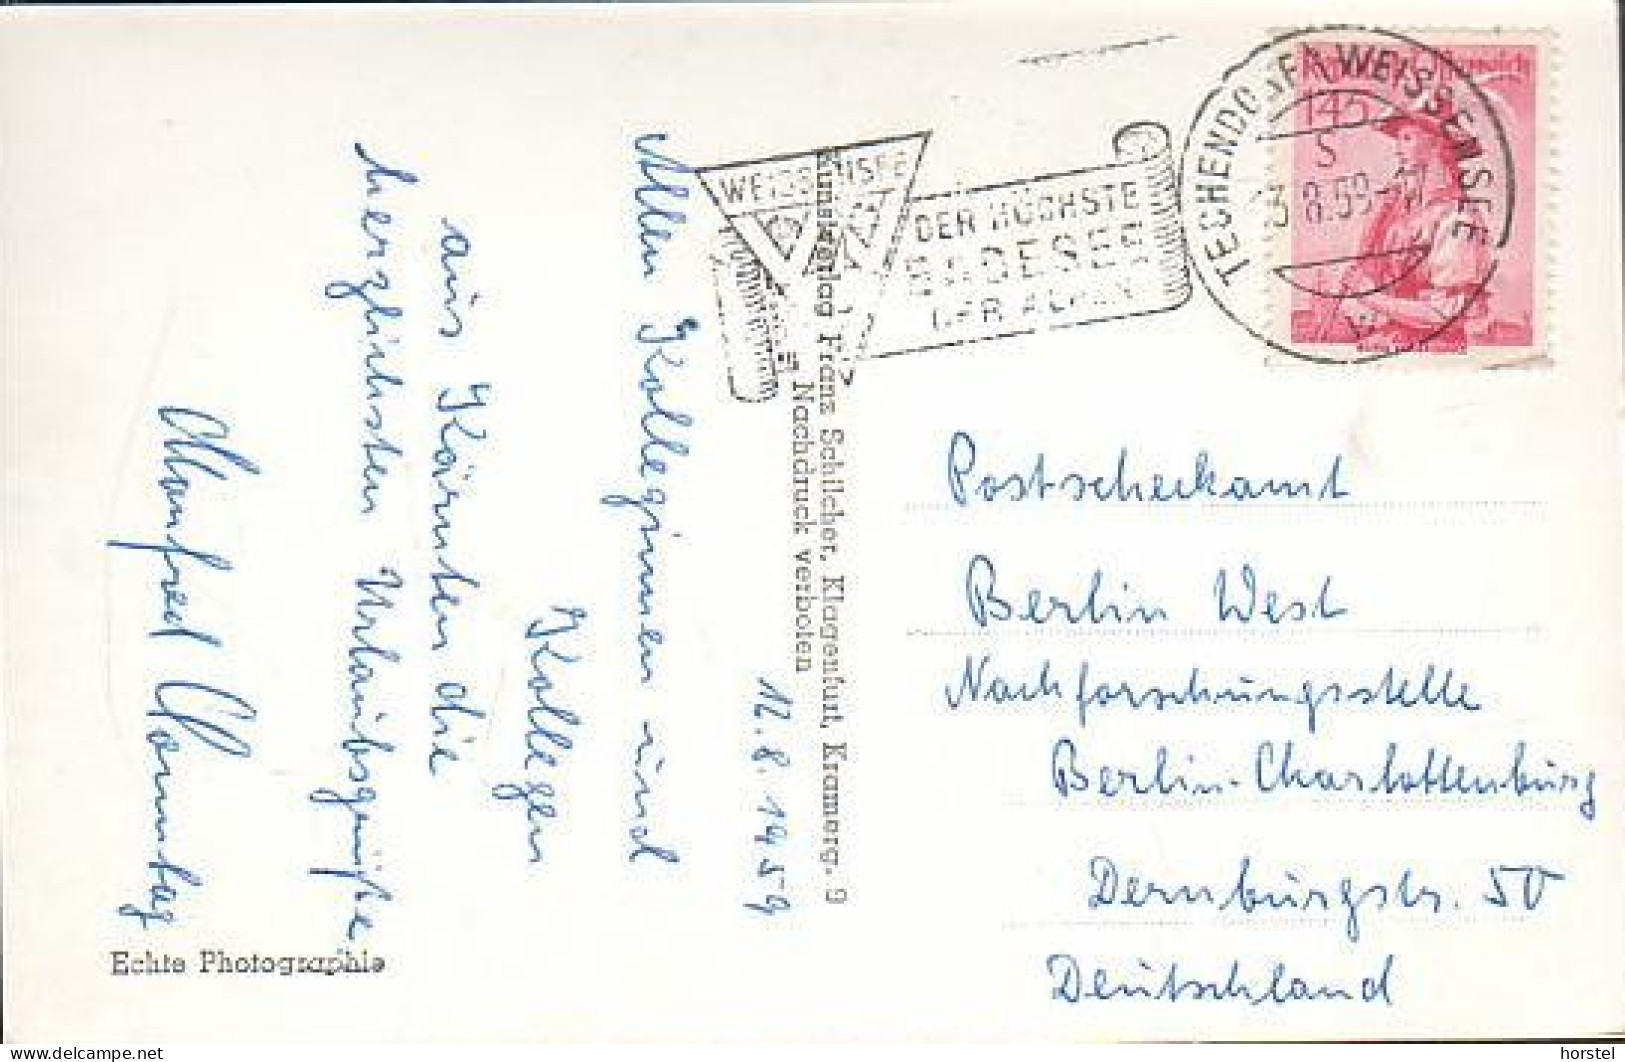 12.8.1959
Allen Kolleginnen und
Kollegen
aus Kärnten die
herzlichsten Urlaubsgrüße
Manfred
Echte Photographie
Kunstverlag Franz Schilcher, Klagenfurt, Kramerg. 9
Nachdruck verboten
WEISSENSEE
DER HÖCHSTE
BADESEE
DER ALPEN
TECHENDORF WEISSENSEE
13.8.59-17
1.45
S
Postscheckamt
Berlin West
Nachforschungsstelle
Berlin-Charlottenburg
Dernburgstr. 50
Deutschland
delcampe.net
horstel